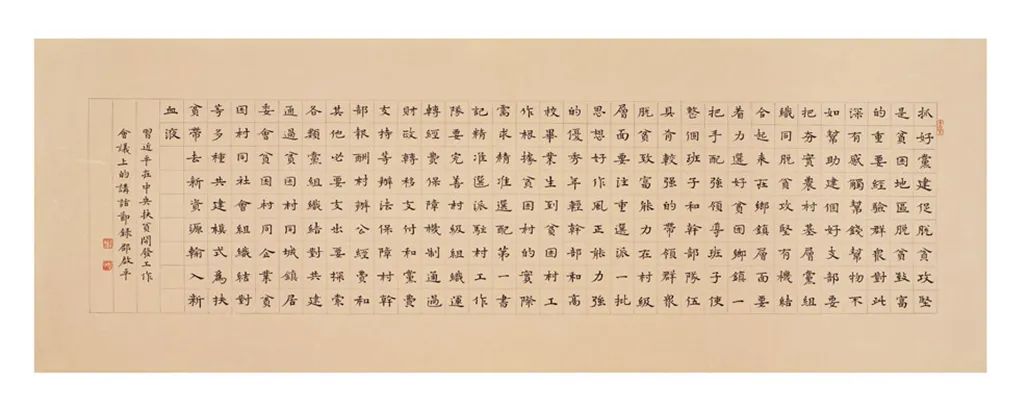 抓好黨建促脫貧攻堅
是貧困地區脫貧致富
的重要經驗群衆對此
深有感觸幫錢幫物不
如幫助建個好支部要
把夯實農村基層黨組
織同脫貧攻堅有機結
合起來在鄉鎮層面要
着力選好貧困鄉鎮一
把手配强領導班子使
整個班子和幹部隊伍
具有較强的帶領群衆
脫貧致富能力在村級
層面要注重選派一批
思想好作風正能力强
的優秀年輕幹部和高
校畢業生到貧困村工
作根據貧困村的實際
需求精准選配第一書
記精准選派駐村工作
隊要完善村級組織運
轉經費保障機制通過
財政轉移支付和黨費
支持等辦法保障村幹
部報酬村辦公經費和
其他必要支出要探索
各類黨組織結對共建
通過貧困村同城鎮居
委會貧困村同企業貧
困村同社會組織結對
等多種共建模式爲扶
貧帶去新資源輸入新
血液
習近平在中央扶貧開發工作
會議上的講話節録邵啟平